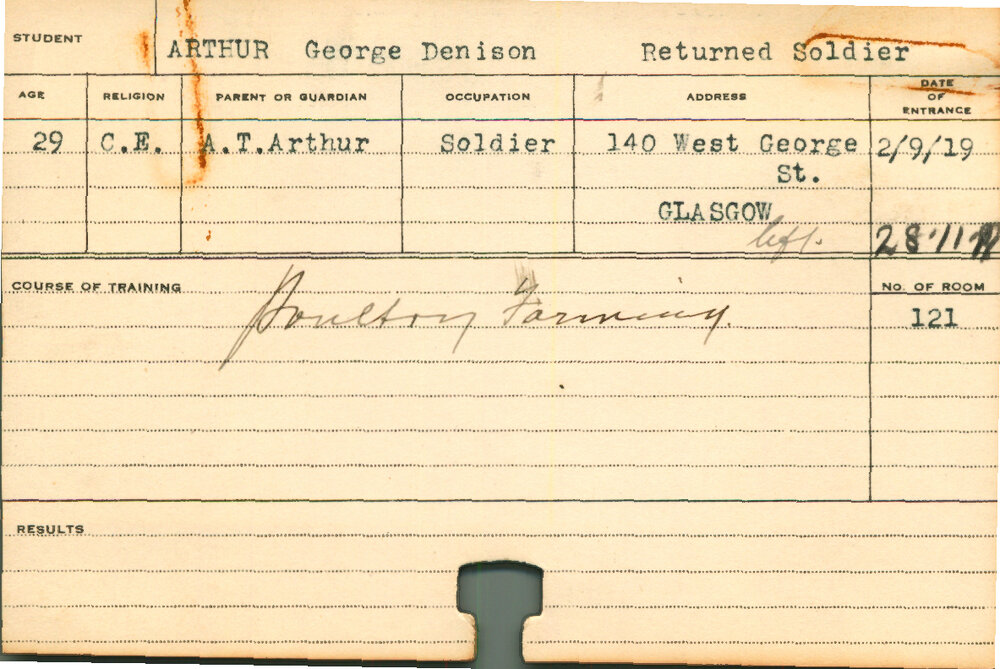 STUDENT ARTHUR George Denison Returned Soldier
AGE RELIGION PARENT OR GUARDIAN OCCUPATION ADDRESS DATE OF ENTRANCE
29 C.E. A.T.Arthur Soldier 140 West George 2/9/19
St.
GLASGOW
left. 28.11.19
COURSE OF TRAINING Poultry Farming. No. OF ROOM
121
RESULTS